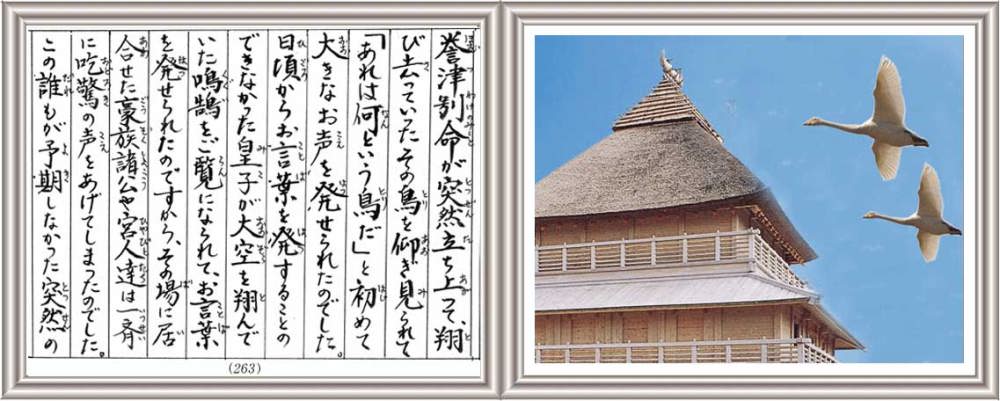 誉津別命が突然立ち上って、翔
び去っていったその鳥を仰ぎ見られて
「あれは何という鳥だ」と初めて
大きなお声を発せられたのでした。
日頃からお言葉を発することの
できなかった皇子が大空を翔んで
いた鳴鵠をご覧になられて、お言葉
を発せられたのですから、その場に居
合せた豪族諸公や宮人達は一斉
に吃驚の声をあげてしまったのでした。
この誰もが予期しなかった突然の
(263)